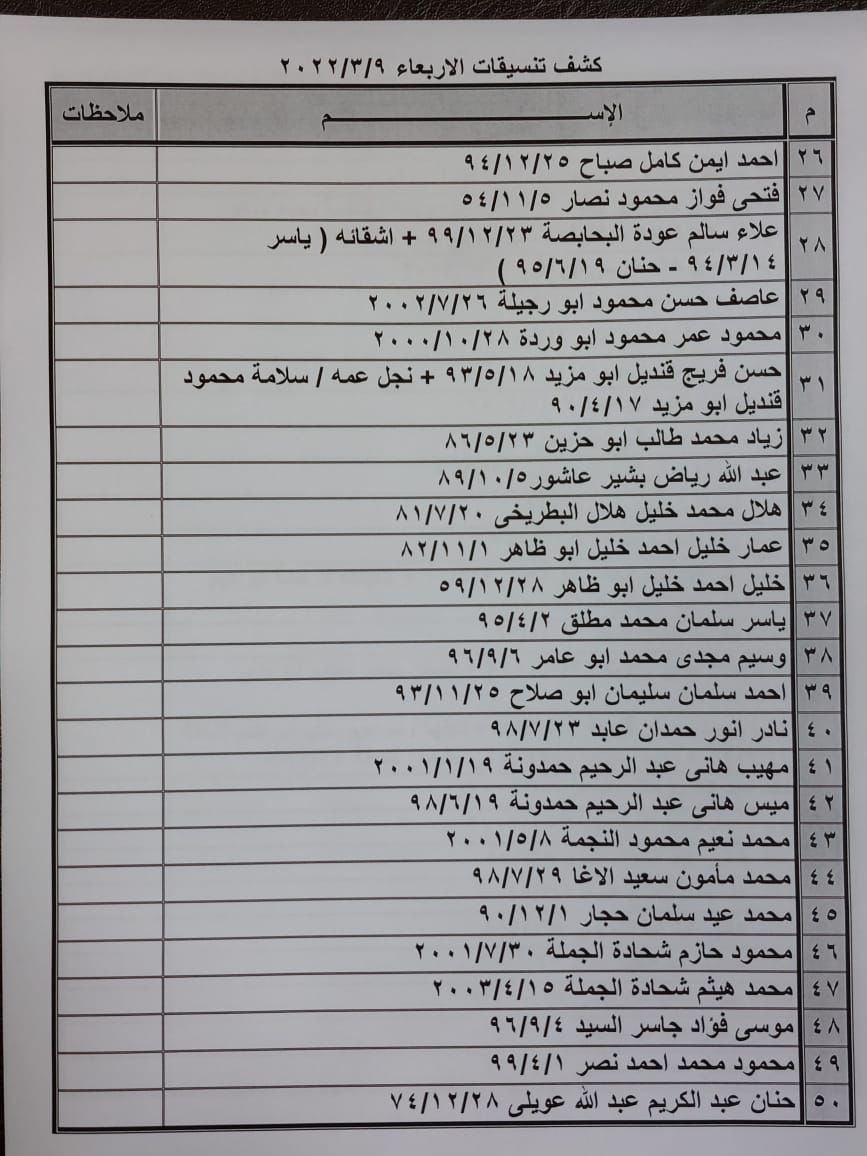 كشف تنسيقات الاربعاء ٢٠٢٢/٣/٩
م الإســــــــــــم ملاحظات
٢٦ احمد ايمن كامل صباح ٩٤/١٢/٢٥
٢٧ فتحى فواز محمود نصار ٥٤/١١/٥
٢٨ علاء سالم عودة البحابصة ٩٩/١٢/٢٣ + اشقائه ( ياسر
٩٤/٣/١٤ - حنان ٩٥/٦/١٩ )
٢٩ عاصف حسن محمود ابو رجيلة ٢٠٠٢/٧/٢٦
٣٠ محمود عمر محمود ابو وردة ٢٠٠٠/١٠/٢٨
٣١ حسن فريج قنديل ابو مزيد ٩٣/٥/١٨ + نجل عمه / سلامة محمود
قنديل ابو مزيد ٩٠/٤/١٧
٣٢ زياد محمد طالب ابو حزين ٨٦/٥/٢٣
٣٣ عبد الله رياض بشير عاشور ٨٩/١٠/٥
٣٤ هلال محمد خليل هلال البطريخى ٨١/٧/٢٠
٣٥ عمار خليل احمد خليل ابو ظاهر ٨٢/١١/١
٣٦ خليل احمد خليل ابو ظاهر ٥٩/١٢/٢٨
٣٧ ياسر سلمان محمد مطلق ٩٥/٤/٢
٣٨ وسيم مجدى محمد ابو عامر ٩٦/٩/٦
٣٩ احمد سلمان سليمان ابو صلاح ٩٣/١١/٢٥
٤٠ نادر انور حمدان عابد ٩٨/٧/٢٣
٤١ مهيب هانى عبد الرحيم حمدونة ٢٠٠١/١/١٩
٤٢ ميس هانى عبد الرحيم حمدونة ٩٨/٦/١٩
٤٣ محمد نعيم محمود النجمة ٢٠٠١/٥/٨
٤٤ محمد مأمون سعيد الاغا ٩٨/٧/٢٩
٤٥ محمد عيد سلمان حجار ٩٠/١٢/١
٤٦ محمود حازم شحادة الجملة ٢٠٠١/٧/٣٠
٤٧ محمد هيثم شحادة الجملة ٢٠٠٣/٤/١٥
٤٨ موسى فؤاد جاسر السيد ٩٦/٩/٤
٤٩ محمود محمد احمد نصر ٩٩/٤/١
٥٠ حنان عبد الكريم عبد الله عويلى ٧٤/١٢/٢٨